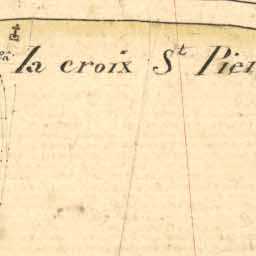 la croix St Pier